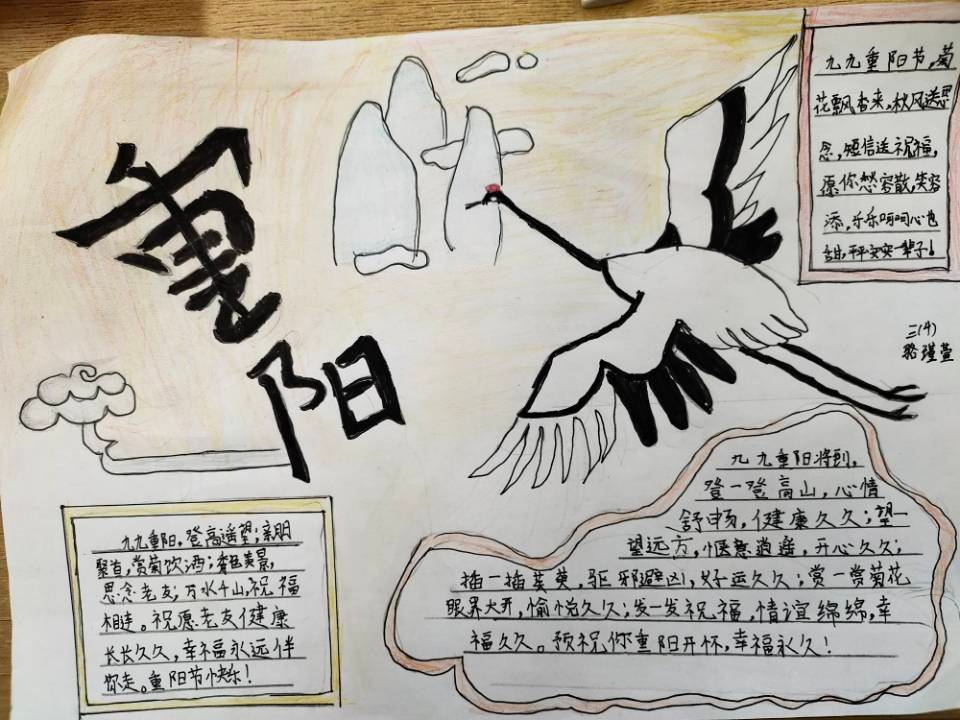 重
阳
九九重阳节,菊
花飘香来,秋风送思
念,短信送祝福,
愿你愁容散,笑容
添,乐乐呵呵心也
甜,平平安安一辈子!
三(4)
骆瑾萱
九九重阳,登高遥望;亲朋
聚首,赏菊饮酒;秀色美景,
思念老友;万水千山,祝福
相连。祝愿老友健康
长长久久,幸福永远伴
你走。重阳节快乐!
九九重阳将到,
登一登高山,心情
舒畅,健康久久;望一
望远方,惬意逍遥,开心久久;
插一插茱萸,驱邪避凶,好运久久;赏一赏菊花
眼界大开,愉悦久久;发一发祝福,情谊绵绵,幸
福久久。预祝你重阳开怀,幸福永久!